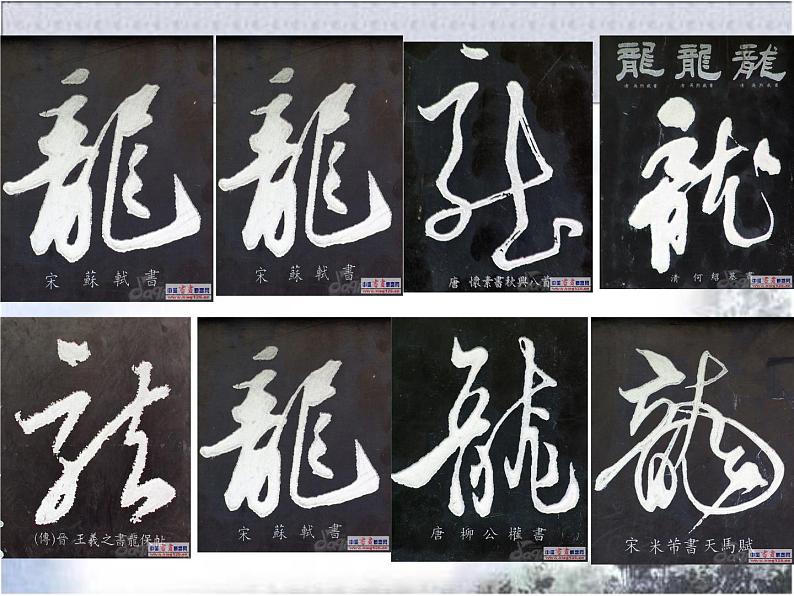 龍
宋 蘇軾書
龍
宋 蘇軾書
龍
唐 懷素書秋興八首
龍 龍 龍
龍
清 何紹基書
龍
(傳)晉 王羲之書龍保帖
龍
宋 蘇軾書
龍
唐 柳公權書
龍
宋 米芾書天馬賦